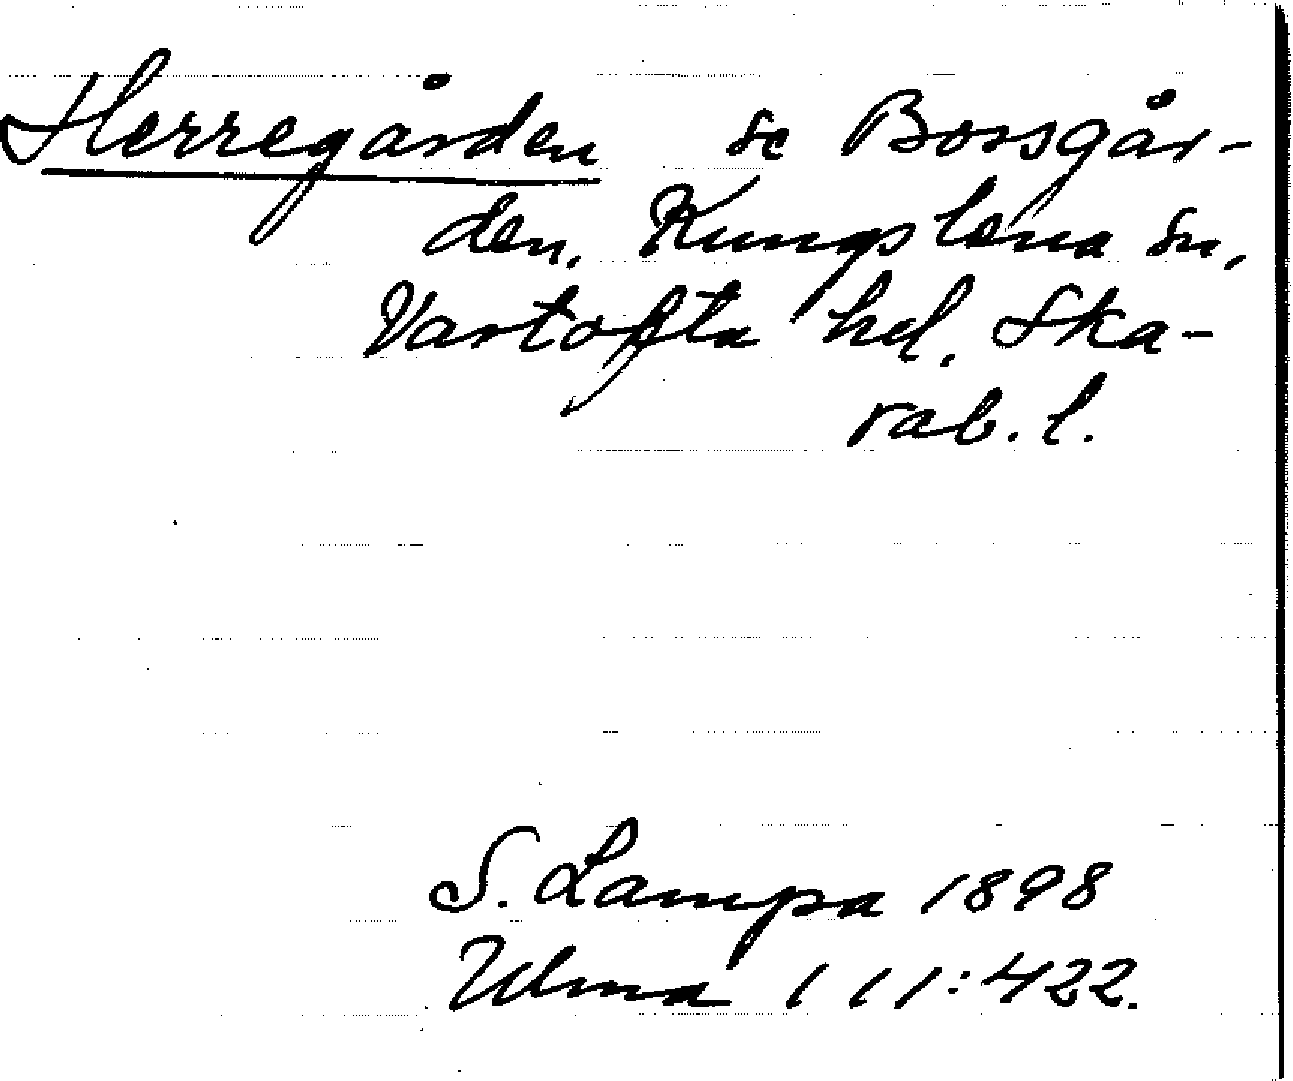 Herregården se Borsgår-
den, Kungslena sn,
Vartofta hd, Ska-
rab. l.
S. Lampa 1898
Ulma 111:422.